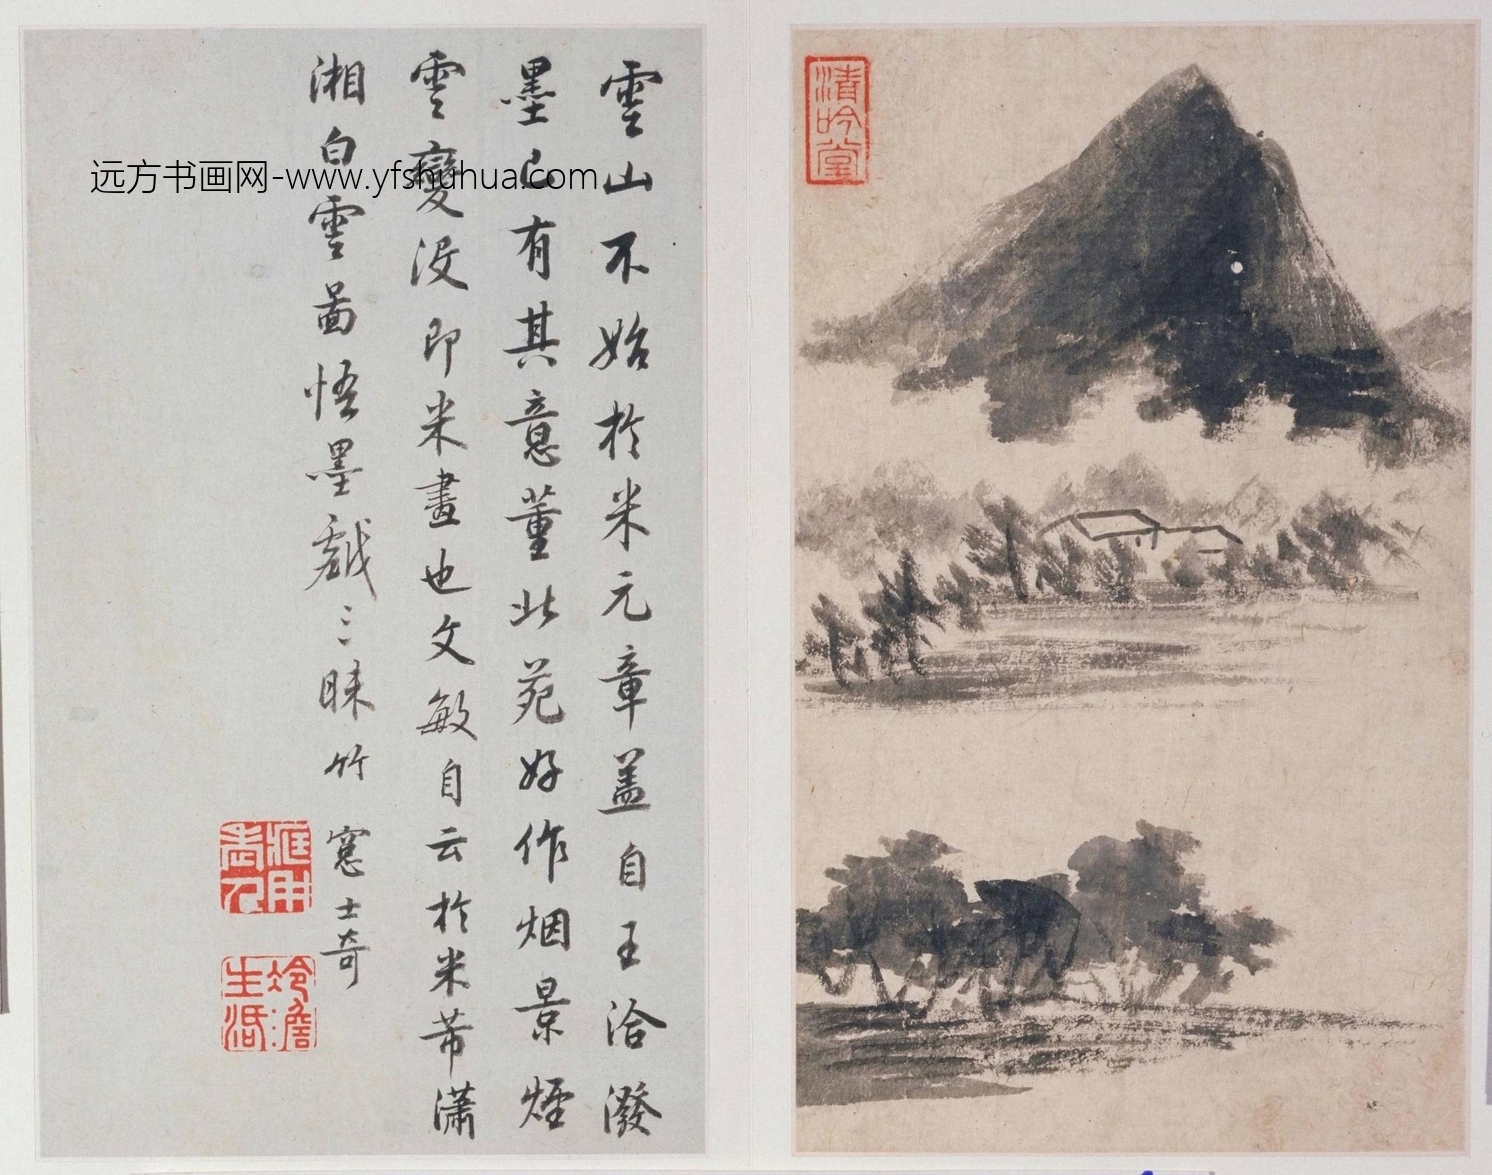 雲山不始於米元章盖自王洽潑
墨已有其意董北苑好作烟景煙
雲變没即米畫也文敏自云於米芾瀟
湘白雲圖悟墨戲三昧竹窻士奇
清吟堂
远方书画网-www.yfshuhua.com